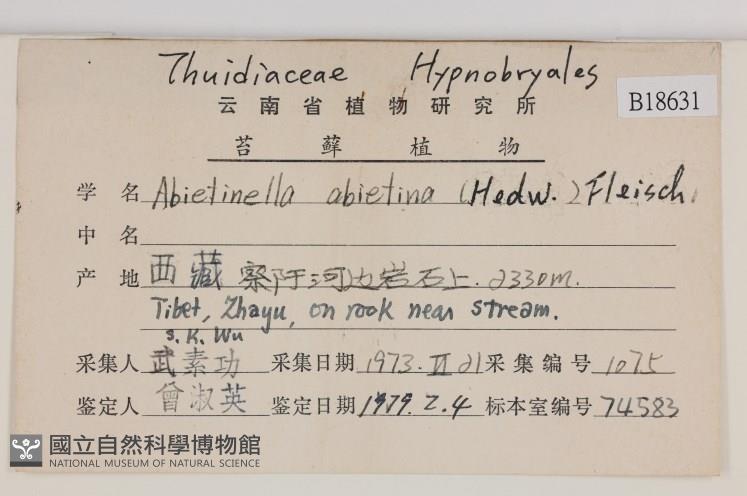 Thuidiaceae Hypnobryales
云南省植物研究所
B18631
苔藓植物
学名 Abietinella abietina (Hedw.) Fleisch.
中名
产地 西藏 察隅河边岩石上. 2330m.
Tibet, Zhayu, on rook near stream.
S. K. Wu
采集人 武素功 采集日期 1973. VI 21 采集编号 1075
鉴定人 曾淑英 鉴定日期 1979. 2. 4 标本室编号 74583
國立自然科學博物館
NATIONAL MUSEUM OF NATURAL SCIENCE